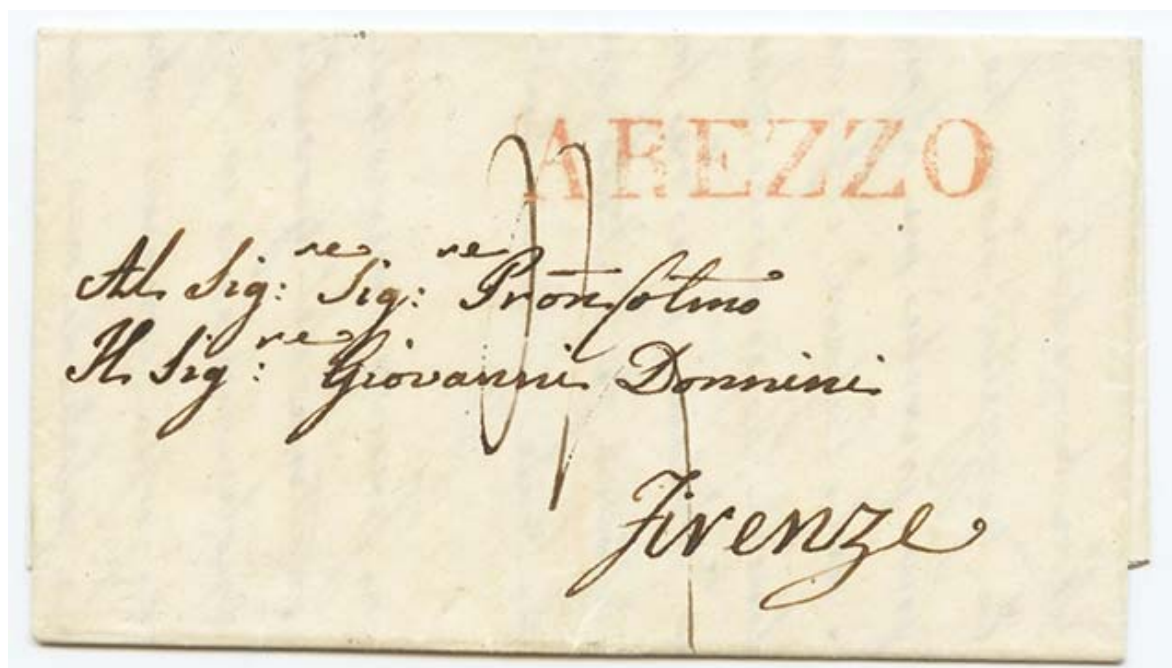 AREZZO
Al Sig:re Sig:re Pron Colmo
Il Sig:re Giovanni Donnini
Firenze